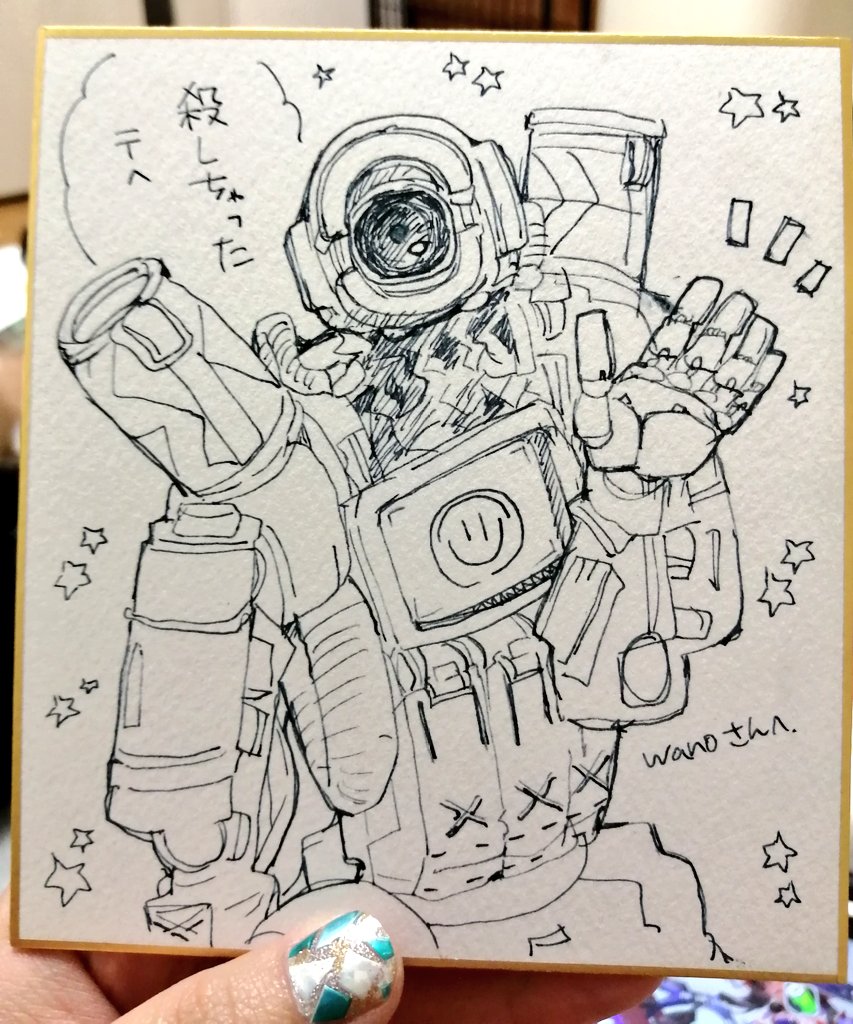 殺しちゃった
テヘ
wanoさんへ.